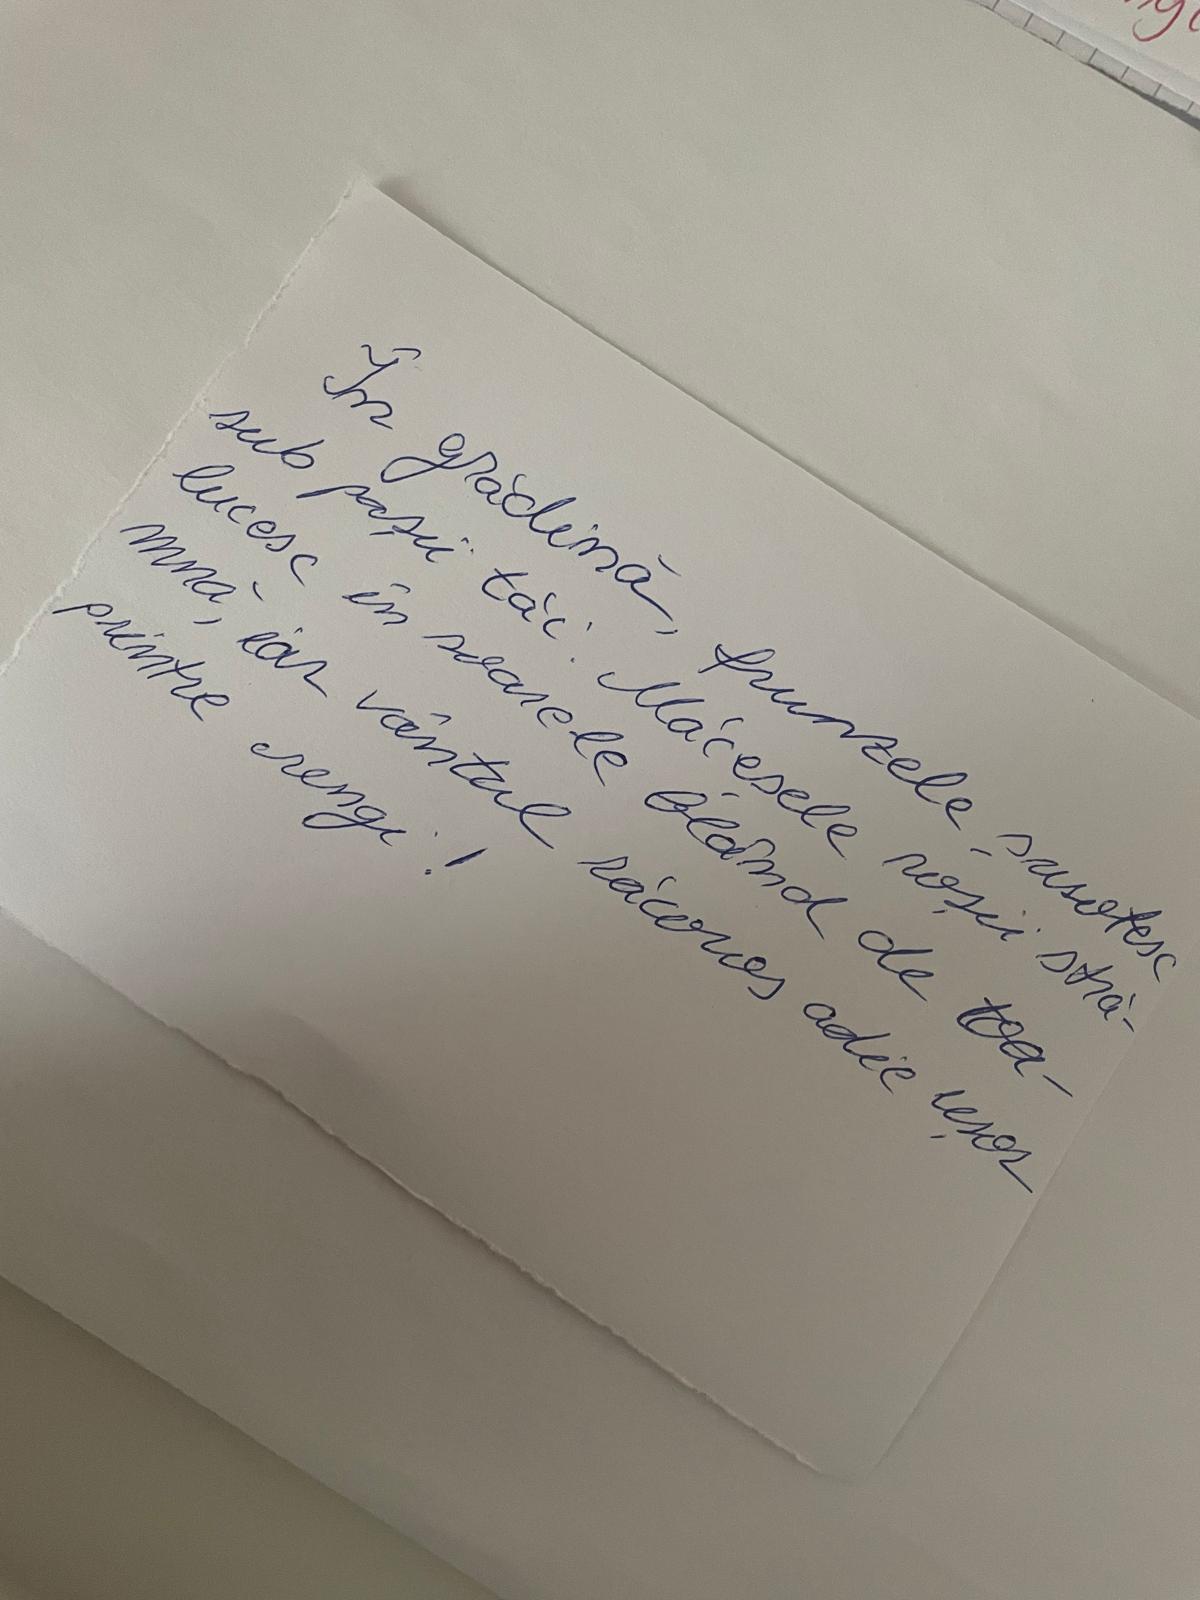 În grădină, frunzele șusotesc
sub pașii tăi. Măceșele roșii stră-
lucesc în soarele blând de toa-
mnă, iar vântul răcoros adie ușor
printre crengi!